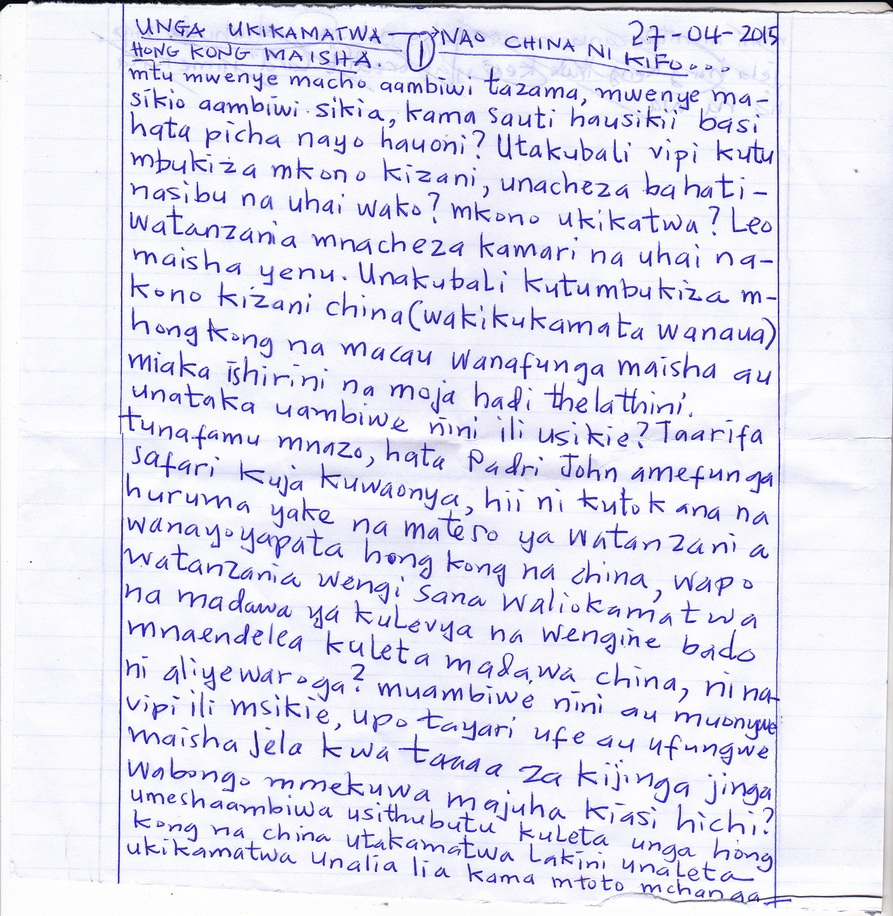 UNGA UKIKAMATWA NAO CHINA NI 27-04-2015
HONG KONG MAISHA. ① KIFO....
mtu mwenye macho aambiwi tazama, mwenye ma-
sikio aambiwi sikia, kama sauti hausikii basi
hata picha nayo hauoni? Utakubali vipi kutu
mbukiza mkono kizani, unacheza bahati-
nasibu na uhai wako? mkono ukikatwa? Leo
watanzania mnacheza kamari na uhai na-
maisha yenu. Unakubali kutumbukiza m-
kono kizani china (wakikukamata wanaua)
hongkong na macau wanafunga maisha au
miaka ishirini na moja hadi thelathini.
unataka uambiwe nini ili usikie? Taarifa
tunafamu mnazo, hata Padri John amefunga
safari kuja kuwaonya, hii ni kutokana na
huruma yake na mateso ya watanzania
wanayoyapata hong kong na china, wapo
watanzania wengi sana waliokamatwa
na madawa ya kulevya na wengine bado
mnaendelea kuleta madawa china, ni na-
ni aliyewaroga? muambiwe nini au muonywe
vipi ili msikie, upo tayari ufe au ufungwe
maisha Jela kwa tamaa za kijinga jinga
wabongo mmekuwa majuha kiasi hichi?
umeshaambiwa usithubutu kuleta unga hong
kong na china utakamatwa Lakini unaleta
ukikamatwa unalia lia kama mtoto mchanga